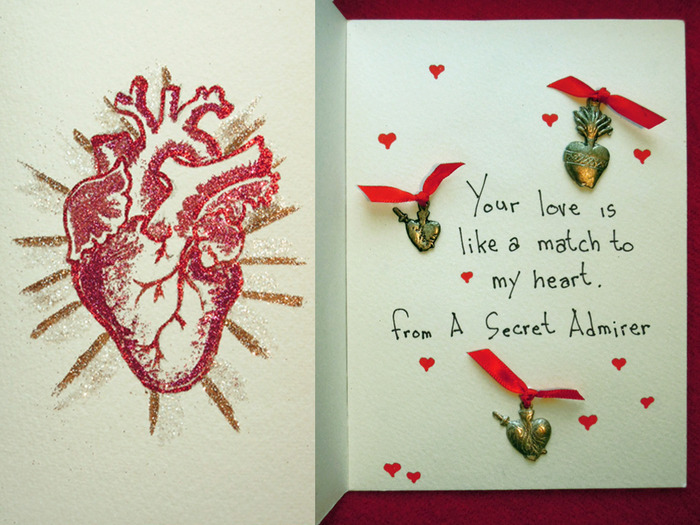 Your love is
like a match to
my heart.
from A Secret Admirer